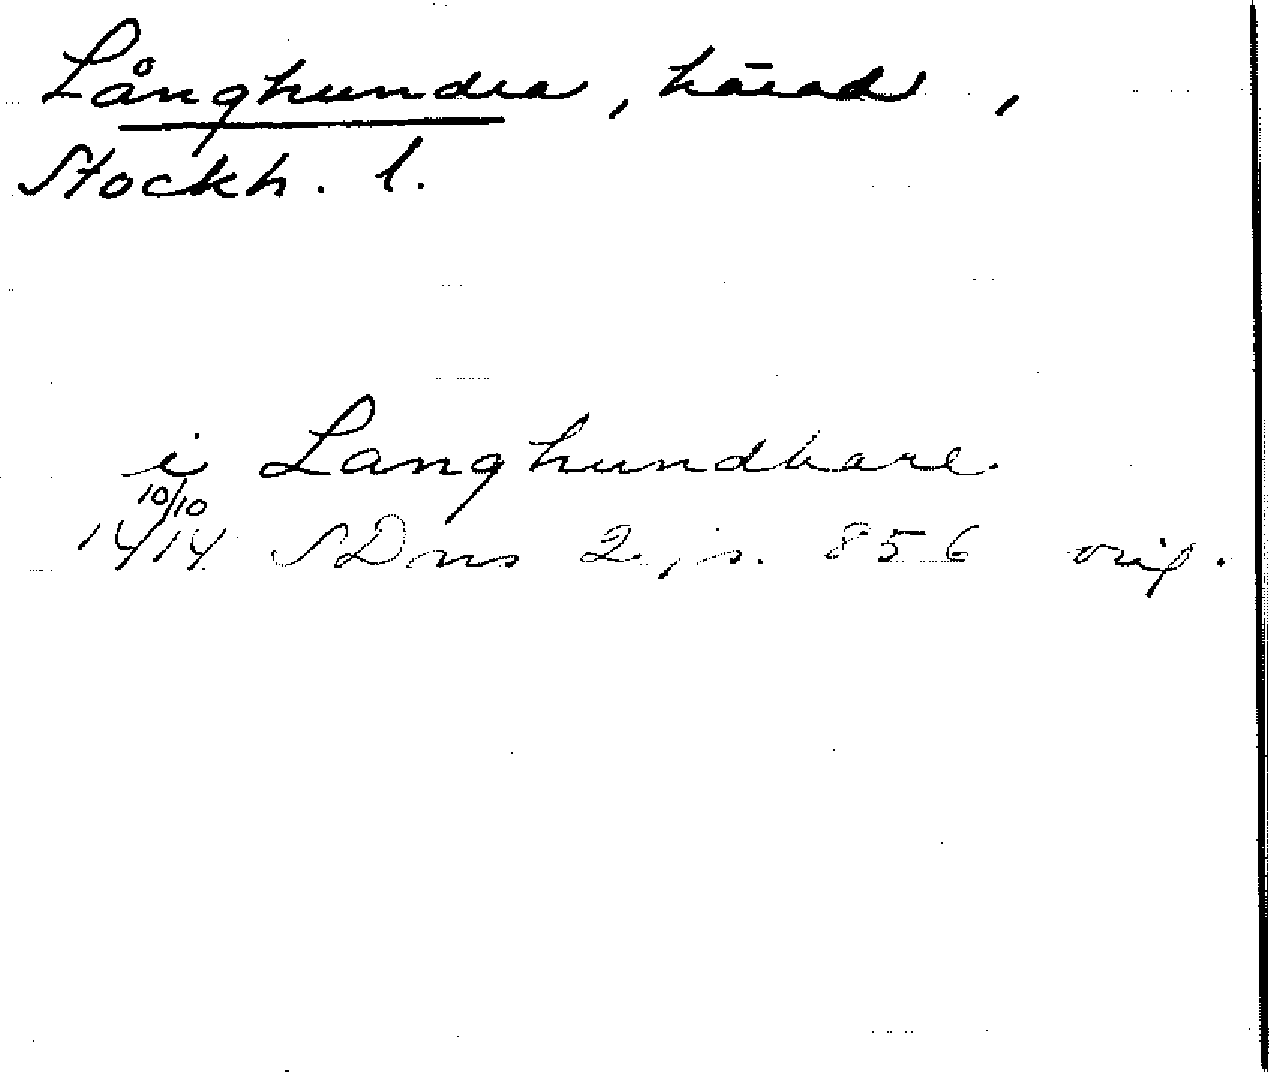 Långhundra, härad,
Stockh. l.
i Langhundhare
10/10
1414 SDns 2, s. 856 orig.